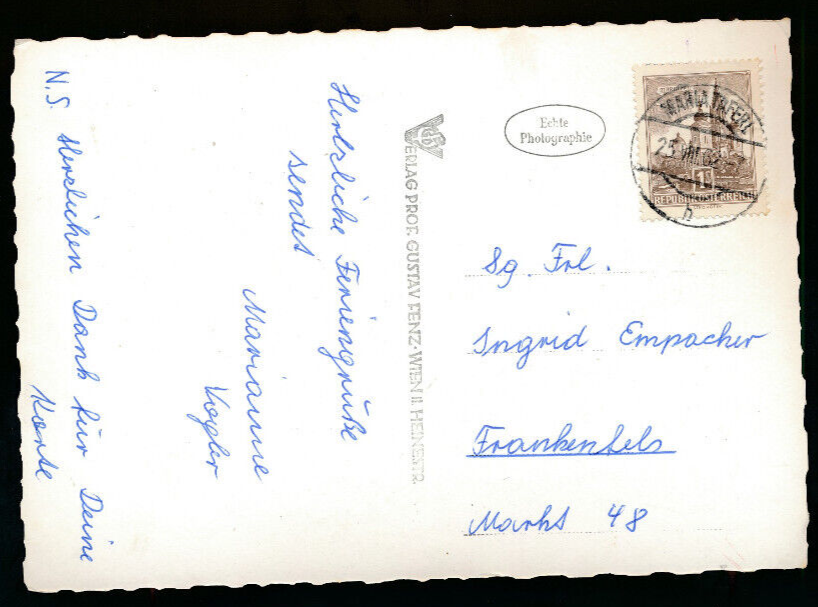 Herzliche Feriengrüße
sendet
Marianne
Vogler
N.S. Herzlichen Dank für Deine
Karte
VERLAG PROF. GUSTAV FENZ·WIEN II. HEINESTR.
Echte
Photographie
MARIA TAFERL
25.VIII.62
1
REPUBLIK ÖSTERREICH
h
Sg. Frl.
Ingrid Empacher
Frankenfels
Markt 48